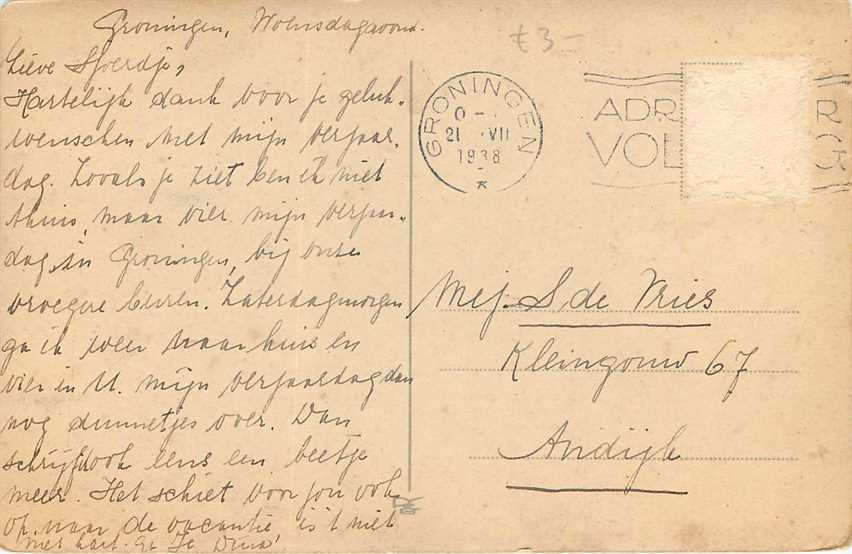 Groningen, Woensdagavond.
Lieve Sjoerdje,
Hartelijk dank voor je geluk-
wenschen met mijn verjaar-
dag. Zooals je ziet ben ik niet
thuis, maar vier mijn verjaar-
dag in Groningen, bij onze
vroegere buren. Zaterdagmorgen
ga ik weer naar huis en
vier in U. mijn verjaardag dan
nog dunnetjes over. Dan
schrijf ook eens een beetje
meer. Het schiet voor jou ook
op naar de vacantie is 't niet
met hart. gr. Je Dina
£ 3-
GRONINGEN
21 VII
1938
ADR R
VOL
Mej. S de Vries
Kleingouw 67
Andijk